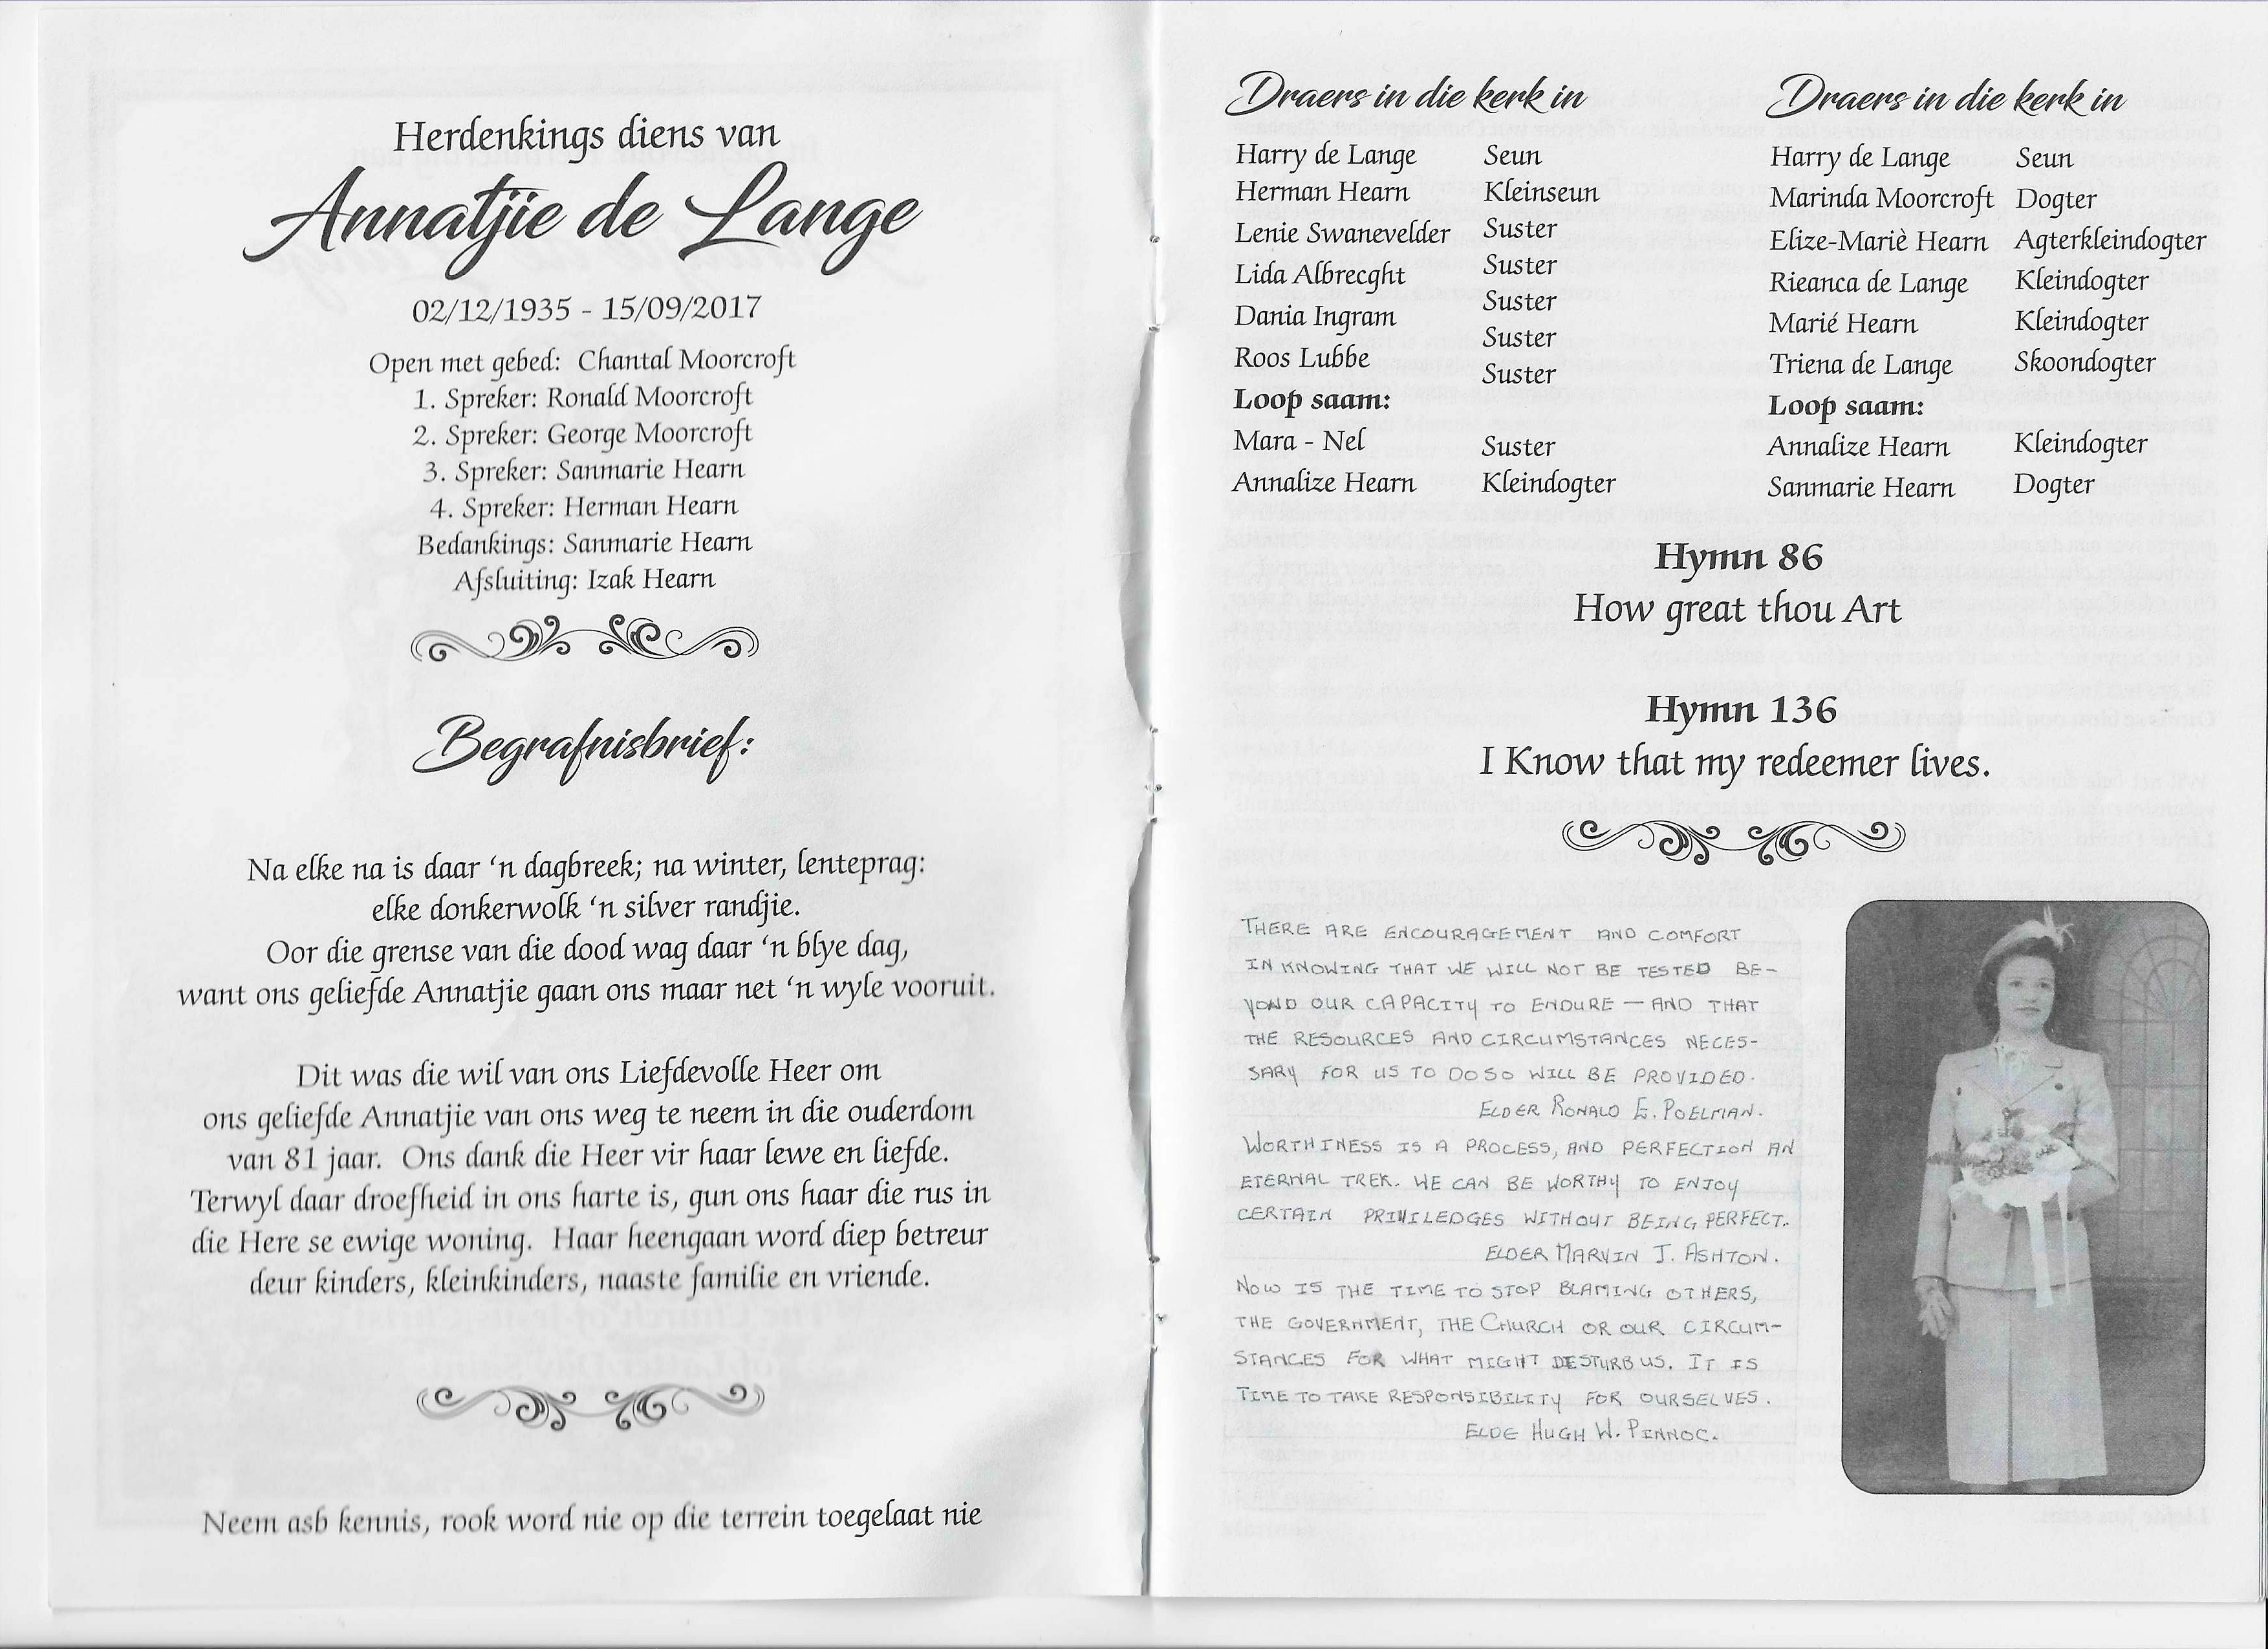 Herdenkings diens van
Annatjie de Lange
02/12/1935 - 15/09/2017
Open met gebed: Chantal Moorcroft
1. Spreker: Ronald Moorcroft
2. Spreker: George Moorcroft
3. Spreker: Sanmarie Hearn
4. Spreker: Herman Hearn
Bedankings: Sanmarie Hearn
Afsluiting: Izak Hearn
Begrafnisbrief:
Na elke na is daar ‘n dagbreek; na winter, lenteprag:
elke donkerwolk ‘n silver randjie.
Oor die grense van die dood wag daar ‘n blye dag,
want ons geliefde Annatjie gaan ons maar net ‘n wyle vooruit.
Dit was die wil van ons Liefdevolle Heer om
ons geliefde Annatjie van ons weg te neem in die ouderdom
van 81 jaar. Ons dank die Heer vir haar lewe en liefde.
Terwyl daar droefheid in ons harte is, gun ons haar die rus in
die Here se ewige woning. Haar heengaan word diep betreur
deur kinders, kleinkinders, naaste familie en vriende.
Neem asb kennis, rook word nie op die terrein toegelaat nie
Draers in die kerk in
Harry de Lange Seun
Herman Hearn Kleinseun
Lenie Swanevelder Suster
Lida Albrecght Suster
Dania Ingram Suster
Roos Lubbe Suster
Suster
Loop saam:
Mara - Nel Suster
Annalize Hearn Kleindogter
Draers in die kerk in
Harry de Lange Seun
Marinda Moorcroft Dogter
Elize-Mariè Hearn Agterkleindogter
Rieanca de Lange Kleindogter
Marié Hearn Kleindogter
Triena de Lange Skoondogter
Loop saam:
Annalize Hearn Kleindogter
Sanmarie Hearn Dogter
Hymn 86
How great thou Art
Hymn 136
I Know that my redeemer lives.
THERE ARE ENCOURAGEMENT AND COMFORT
IN KNOWING THAT WE WILL NOT BE TESTED BE-
YOND OUR CAPACITY TO ENDURE — AND THAT
THE RESOURCES AND CIRCUMSTANCES NECES-
SARY FOR US TO DO SO WILL BE PROVIDED.
ELDER RONALD E. POELMAN.
WORTHINESS IS A PROCESS, AND PERFECTION AN
ETERNAL TREK. WE CAN BE WORTHY TO ENJOY
CERTAIN PRIVILEDGES WITHOUT BEING PERFECT.
ELDER MARVIN J. ASHTON.
NOW IS THE TIME TO STOP BLAMING OTHERS,
THE GOVERNMENT, THE CHURCH OR OUR CIRCUM-
STANCES FOR WHAT MIGHT DESTURB US. IT IS
TIME TO TAKE RESPONSIBILITY FOR OURSELVES.
ELDE HUGH W. PINNOC.